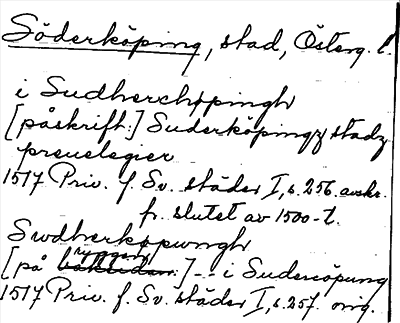 Söderköping, stad, Österg. l.
i Sudherchøpingh
[påskrift:] Suderköpingz stadz
preuelegier
1517 Priv. f. Sv. städer I, s. 256 avskr.
fr. slutet av 1500-t.
Swdherkøpwngh
ryggen
[på baksidan:] - - i Sudercöpung
1517 Priv. f. Sv. städer I, s. 257. orig.